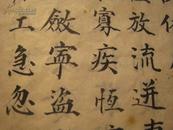 放流迸
寡疾恆
斂寧盜
工急忽